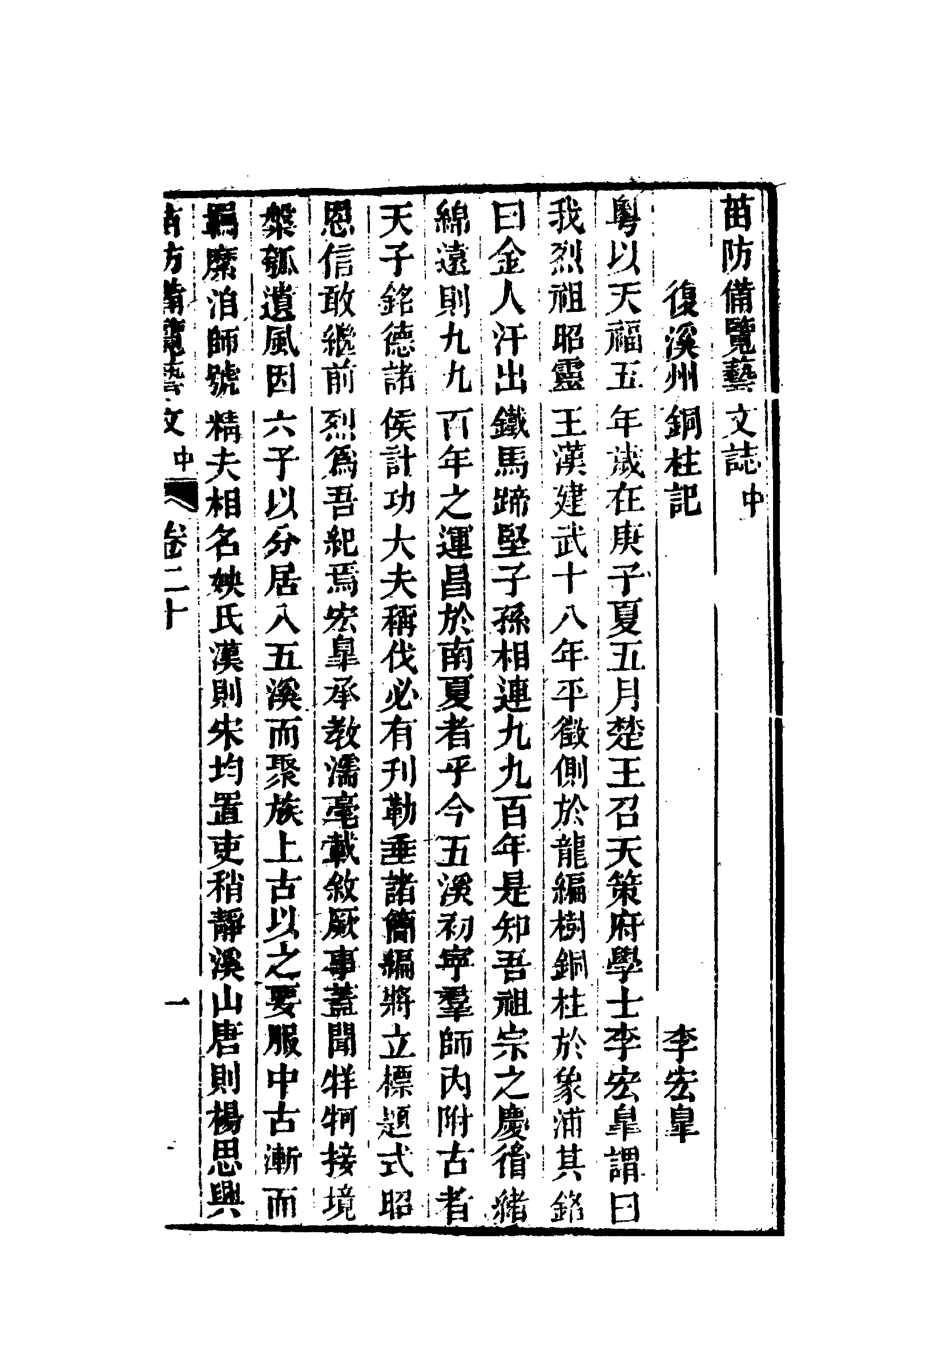 苗防備覽藝文誌中
復溪州銅柱記 李宏臯
粵以天福五年歲在庚子夏五月楚王召天策府學士李宏臯謂曰
我烈祖昭靈王漢建武十八年平徵側於龍編樹銅柱於象浦其銘
曰金人汗出鐵馬蹄堅子孫相連九九百年是知吾祖宗之慶𦙍緒
綿遠則九九百年之運昌於南夏者乎今五溪初寧羣師內附古者
天子銘德諸侯計功大夫稱伐必有刊勒垂諸簡編將立標題式昭
恩信敢繼前烈爲吾紀焉宏臯承教濡毫載敘厥事蓋聞牂牁接境
槃瓠遺風因六子以分居入五溪而聚族上古以之要服中古漸而
羈縻洎師號精夫相名姎氏漢則宋均置吏稍靜溪山唐則楊思興
苗防備覽藝文中 卷二十 一